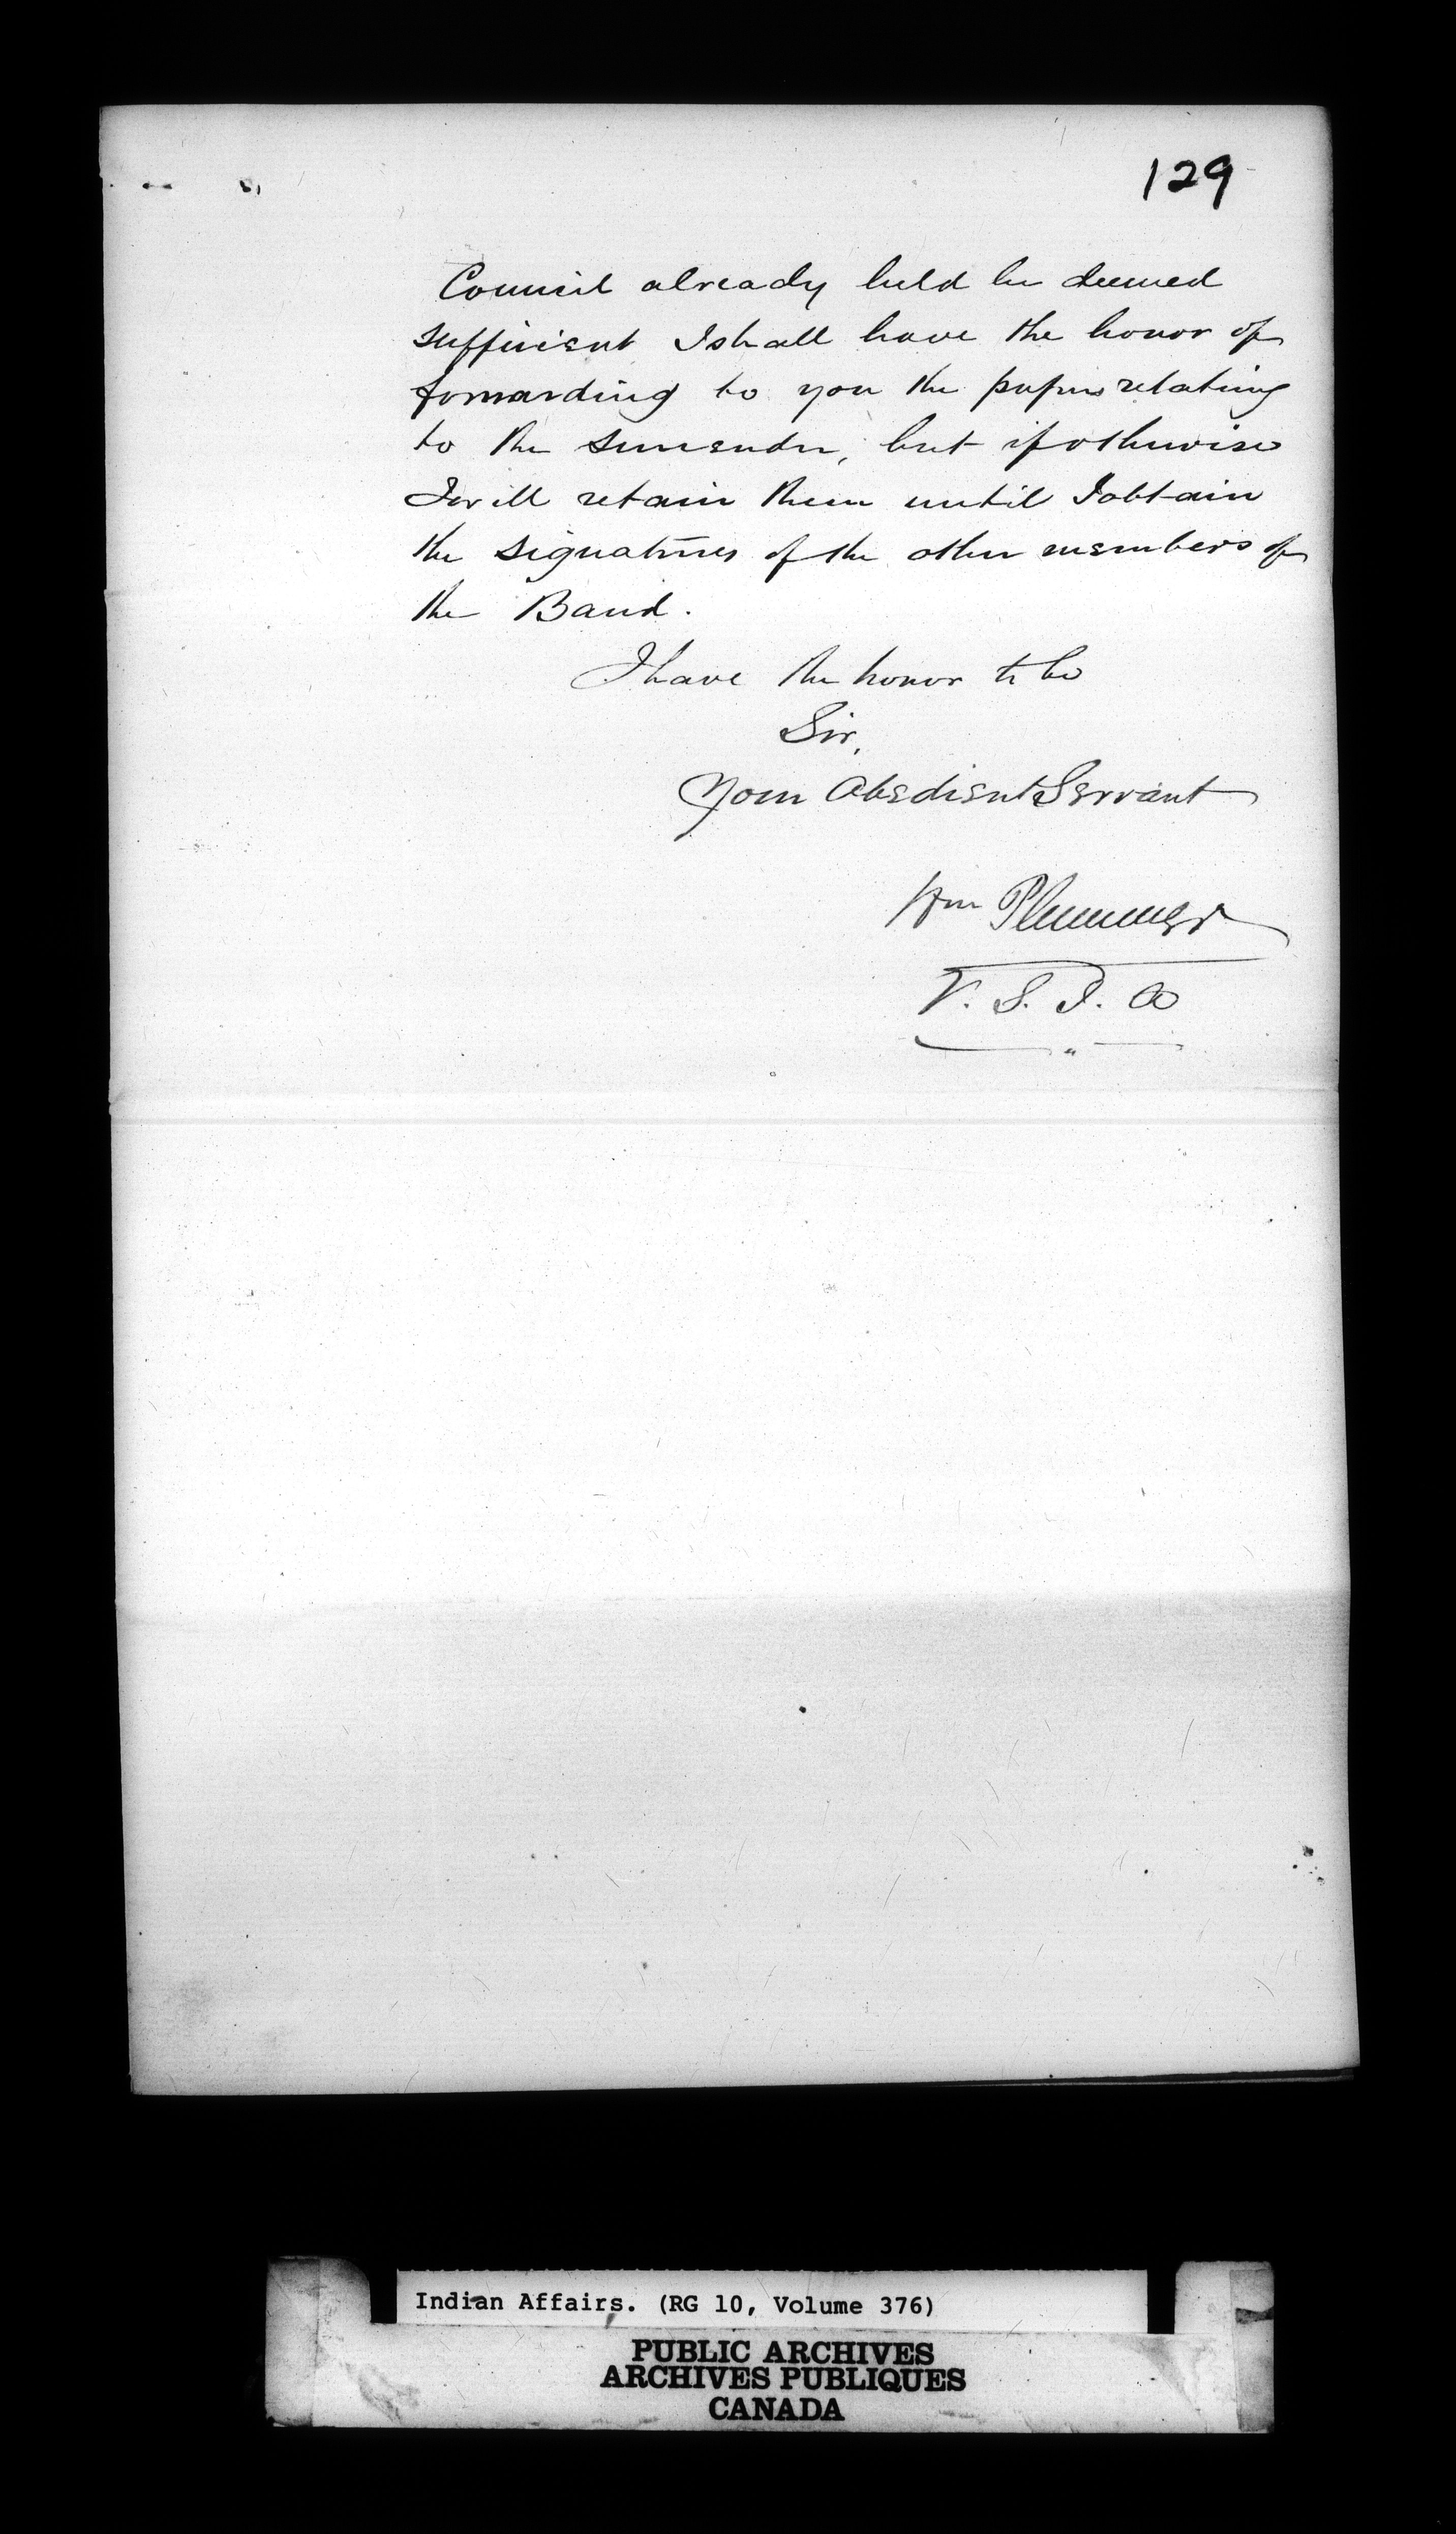 129
Council already held be deemed
sufficient I shall have the honor of
forwarding to you the papers relating
to the surrender, but if otherwise
I will retain them until I obtain
the signatures of the other members of
the Band.
I have the honor to be
Sir,
Your Obedient Servant
Wm Plummer
V. S. I. A
Indian Affairs. (RG 10, Volume 376)
PUBLIC ARCHIVES
ARCHIVES PUBLIQUES
CANADA